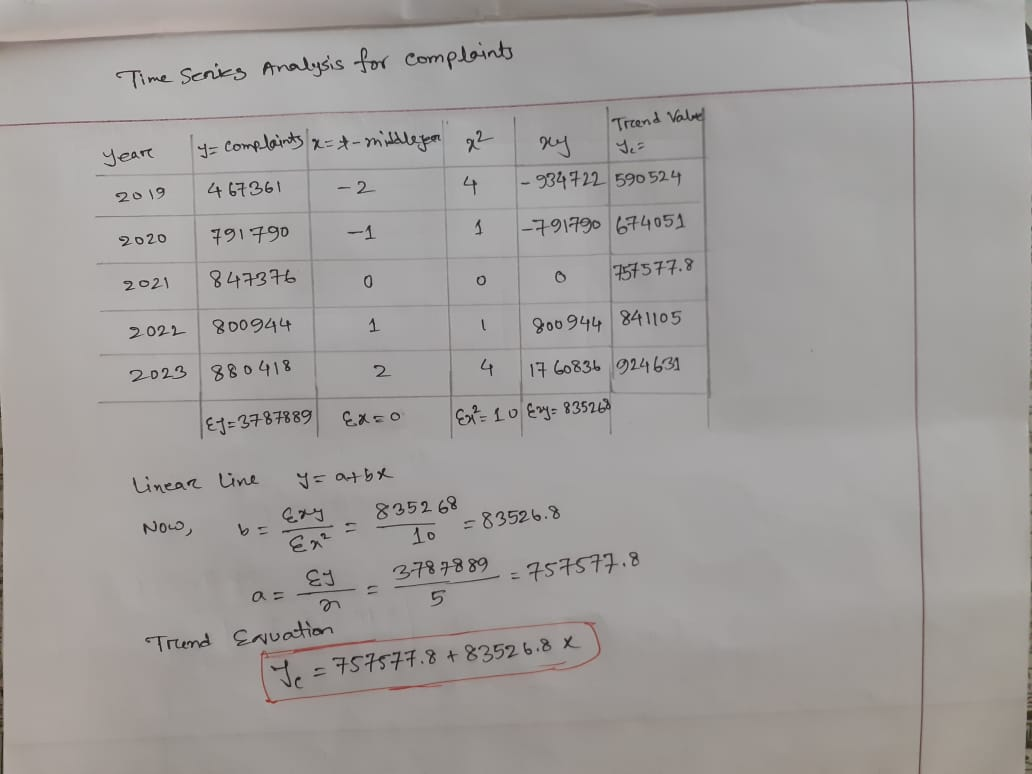 Time Series Analysis for Complaints
Year y= complaints x= t - middle year x² xy Trend Value Yc=
2019 467361 -2 4 -934722 590524
2020 791790 -1 1 -791790 674051
2021 847376 0 0 0 757577.8
2022 800944 1 1 800944 841105
2023 880418 2 4 1760836 924631
Σy=3787889 Σx=0 Σx²=10 Σxy=835268
Linear Line y= a+bx
Now, b= Σxy/Σx² = 835268/10 = 83526.8
a= Σy/n = 3787889/5 = 757577.8
Trend Equation
Yc = 757577.8 + 83526.8 x